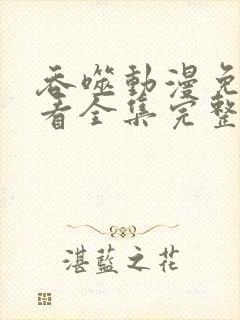 吞噬動漫免
看全集完整
湛藍之花